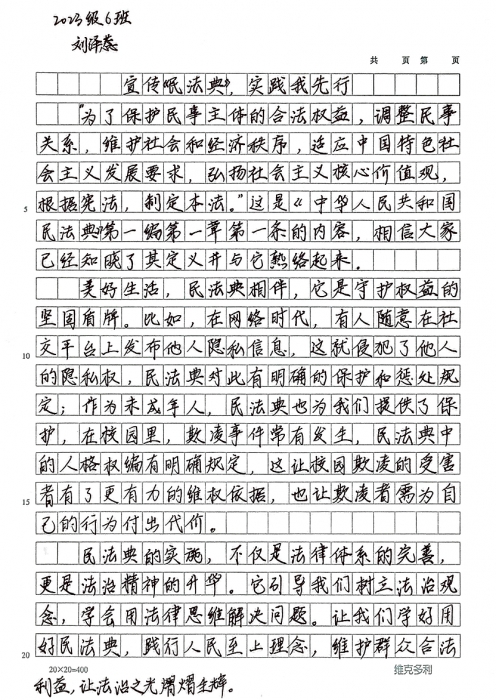 2023级6班
刘泽蕊
共 页 第 页
宣传《民法典》，实践我先行
“为了保护民事主体的合法权益，调整民事
关系，维护社会和经济秩序，适应中国特色社
会主义发展要求，弘扬社会主义核心价值观，
根据宪法，制定本法。”这是《中华人民共和国
5
民法典》第一编第一章第一条的内容，相信大家
已经知晓了其定义并与它熟络起来。
美好生活，民法典相伴，它是守护权益的
坚固盾牌。比如，在网络时代，有人随意在社
10
交平台上发布他人隐私信息，这就侵犯了他人
的隐私权，民法典对此有明确的保护和惩处规
定；作为未成年人，民法典也为我们提供了保
护，在校园里，欺凌事件常有发生，民法典中
的人格权编有明确规定，这让校园欺凌的受害
15
者有了更有力的维权依据，也让欺凌者需为自
己的行为付出代价。
民法典的实施，不仅是法律体系的完善，
更是法治精神的升华。它引导我们树立法治观
念，学会用法律思维解决问题。让我们学好用
20
好民法典，践行人民至上理念，维护群众合法
20×20=400
维克多利
利益，让法治之光熠熠生辉。